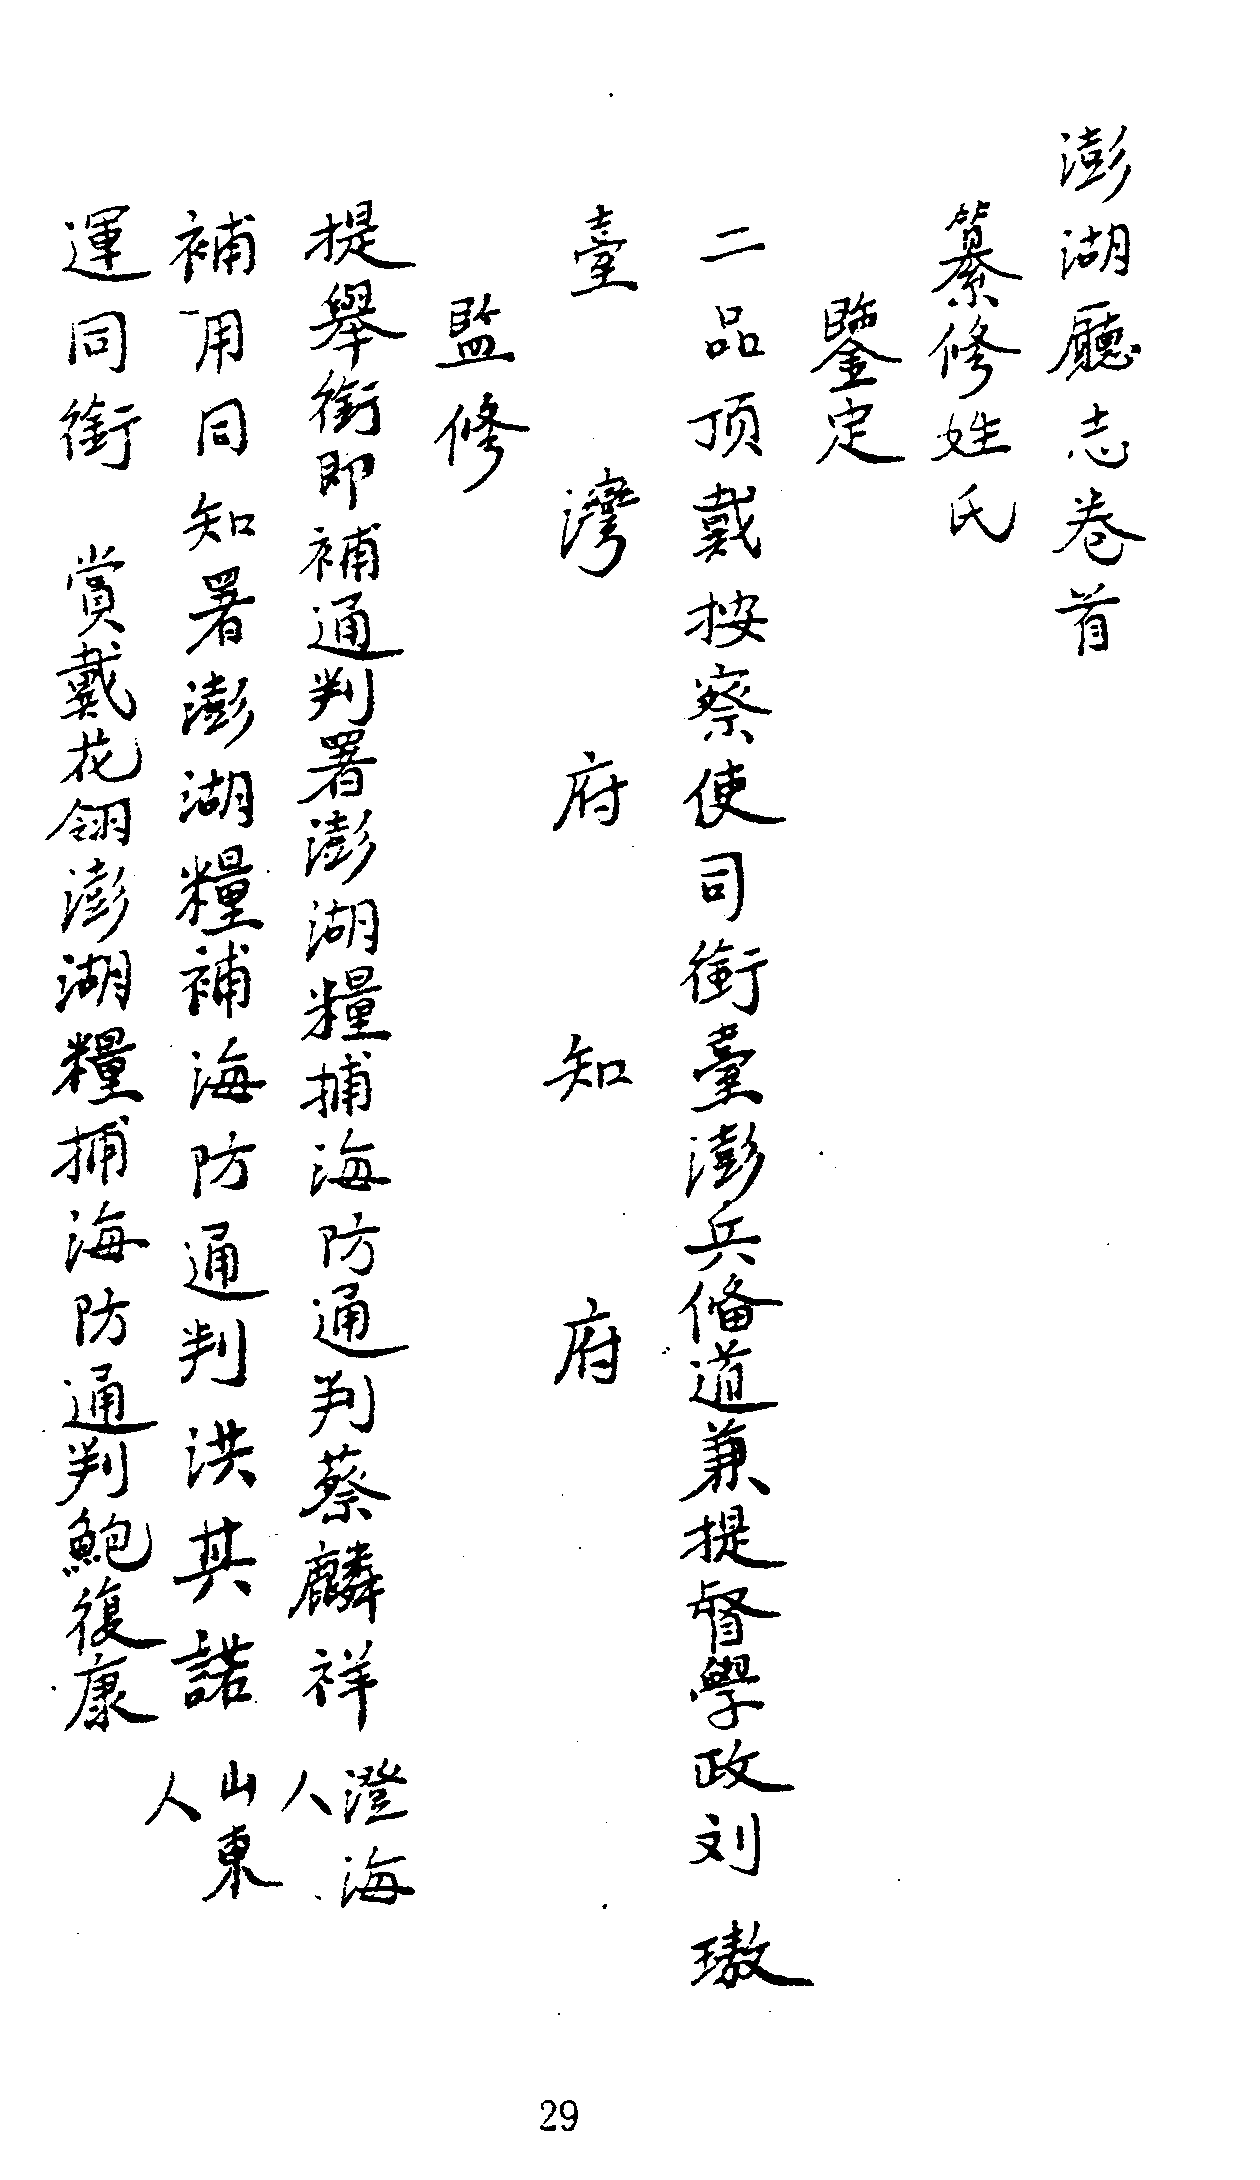 澎湖廳志卷首
纂修姓氏
鑒定
二品頂戴按察使司銜臺澎兵備道兼提督學政刘璈
臺灣府知府
監修
提舉銜即補通判署澎湖糧捕海防通判蔡麟祥澄海人
補用同知署澎湖糧補海防通判洪其諾山東人
運同銜 賞戴花翎澎湖糧捕海防通判鮑復康
29